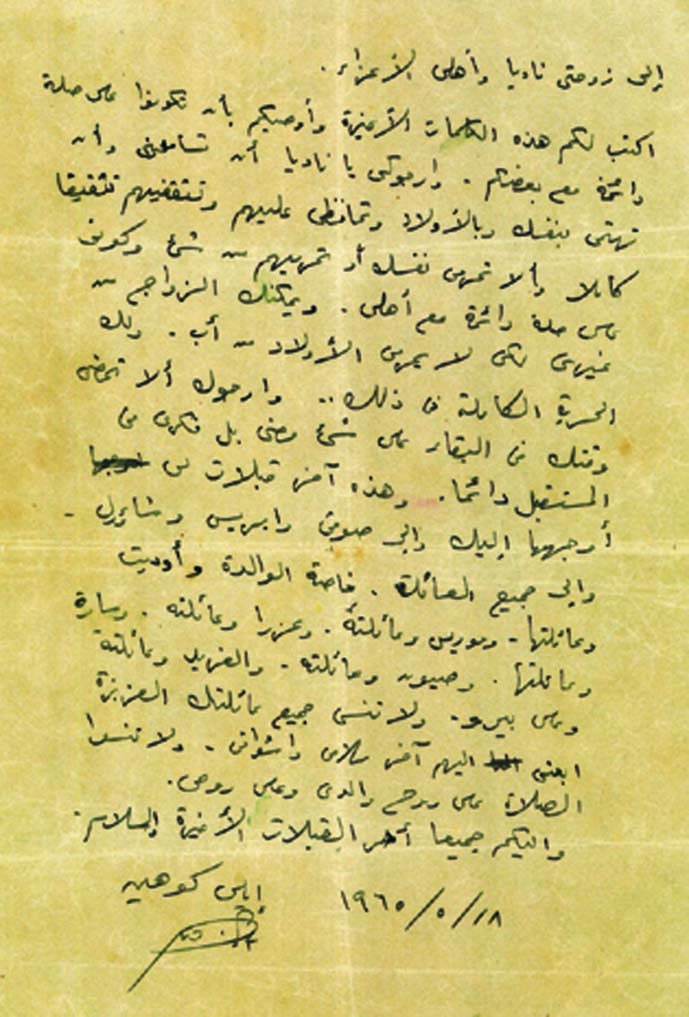 إلى زوجتى ناديا وأهلى الأعزاء.
اكتب لكم هذه الكلمات الأخيرة وأوصيكم بأن تكونوا على صلة
دائمة مع بعضكم. وارجوكى يا ناديا أن تسامحنى وأن
تهتمى بنفسك وبالأولاد وتحافظى عليهم وتثقفيهم تثقيفا
كاملا وألا تحرمى نفسك أو تحرميهم من شئ وكونى
على صلة دائمة مع أهلى. ويمكنك الزواج من
غيرى لكى لا يحرم الأولاد من أب. ولك
الحرية الكاملة فى ذلك.. وارجوك ألا تمضى
وقتك فى البقاء على شئ مضى بل فكرى فى
المستقبل دائما. وهذه آخر قبلات لى
أوجهها إليك وإلى صوفى وايريس وشاؤول -
وإلى جميع العائلة. خاصة الوالدة وأوديت
وعائلتها. وموريس وعائلته. وعزرا وعائلته. وسارة
وعائلتها. وصيون وعائلته. والفريد وعائلته
ولا تنسى جميع عائلتك العزيزة
ابعثى اليهم آخر سلامى واشواقى. ولا تنسوا
الصلاة على روح والدى وعلى روحى.
واليكم جميعا آخر القبلات الأخيرة والسلام.
إيلى كوهين
١٩٦٥/٥/١٨